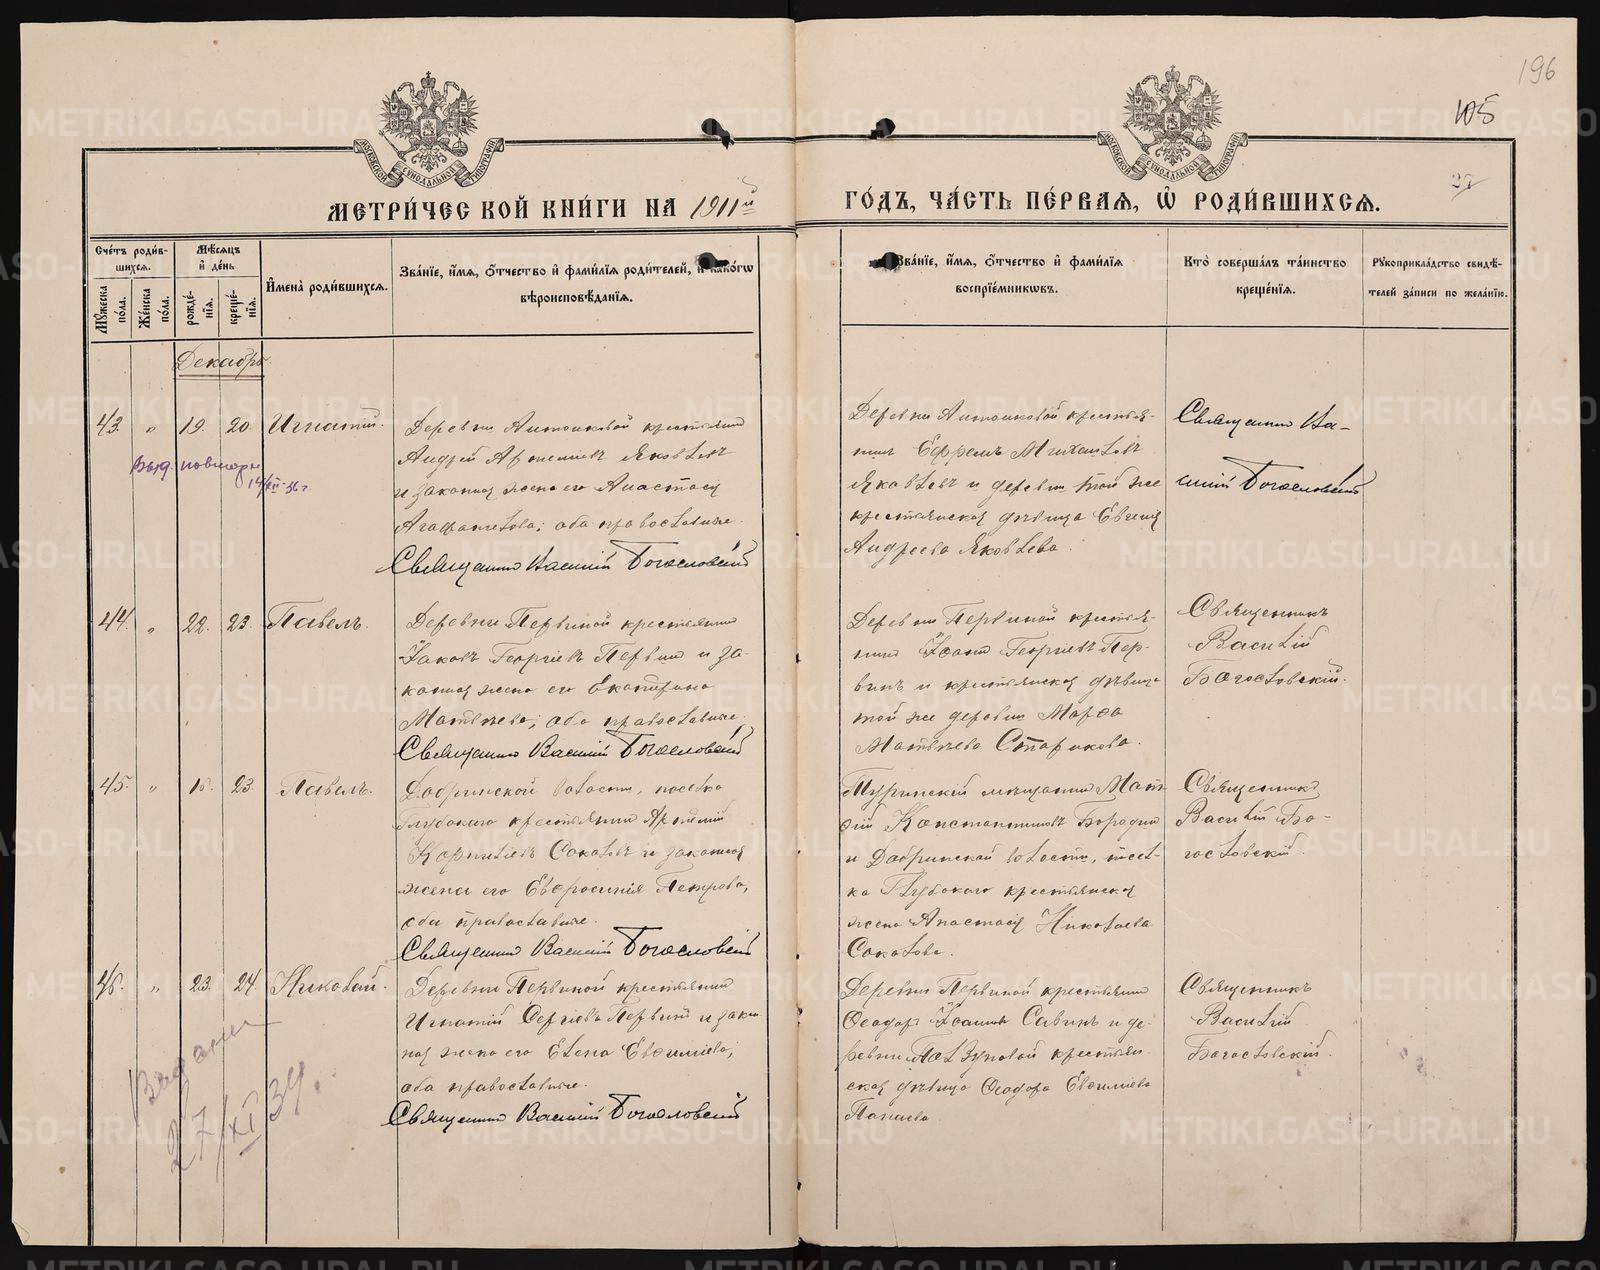 196
105
27
МОСКОВСКОЙ СѴНОДАЛЬНОЙ ТИПОГРАФІИ
МОСКОВСКОЙ СѴНОДАЛЬНОЙ ТИПОГРАФІИ
МЕТРИ́ЧЕСКОЙ КНИ́ГИ НА 1911й
ГО́ДЪ, ЧА́СТЬ ПЕ́РВАЯ, Ѡ҆ РОДИ́ВШИХСЯ.
Сче́тъ роди́в-
шихся.
Мꙋ́жеска по́ла.
Же́нска по́ла.
Мѣ́сяцъ
и҆ де́нь
рожде́-
нїя.
креще́-
нїя.
И҆мена̀ роди́вшихся.
Зва́нїе, и҆́мя, ѻ҆́тчество и҆ фами́лїя роди́телей, и҆ како́гѡ
вѣроисповѣ́данїя.
Зва́нїе, и҆́мя, ѻ҆́тчество и҆ фами́лїя
воспрїе́мникѡвъ.
Кто̀ соверша́лъ та́инство
креще́нїя.
Рꙋкоприкла́дство свидѣ́-
телей за́писи по жела́нїю.
Декабрь.
43. " 19. 20. Игнатій.
Деревни Антоновой крестьянинъ
Андрей Артеміевъ Яковлевъ
и законная жена его Анастасія
Агафангелова; оба православные.
Священникъ Василій Богословскій
Деревни Антоновой крестья-
нинъ Ефремъ Михаиловъ
Яковлевъ и деревни той же
крестьянская дѣвица Евгенія
Андреева Яковлева.
Священникъ Ва-
силій Богословскій
Выд. повторн
14/XII-36 г.
44. " 22. 23. Павелъ.
Деревни Первиной крестьянинъ
Іаковъ Георгіевъ Первинъ и за-
конная жена его Екатерина
Матвѣева; оба православные.
Священникъ Василій Богословскій
Деревни Первиной крестья-
нинъ Іоаннъ Георгіевъ Пер-
винъ и крестьянская дѣвица
той же деревни Марѳа
Матвѣева Старикова.
Священникъ
Василій
Богословскій.
45. " 15. 23. Павелъ.
Добринской волости, поселка
Глубокаго крестьянинъ Артемій
Корниліевъ Соколовъ и законная
жена его Евфросинія Петрова,
оба православные.
Священникъ Василій Богословскій
Туринскій мѣщанинъ Мат-
ѳій Константиновъ Бородинъ
и Добринской волости, посел-
ка Глубокаго крестьянская
жена Анастасія Николаева
Соколова.
Священникъ
Василій Бо-
гословскій.
46. " 23. 24. Николай.
Деревни Первиной крестьянинъ
Игнатій Сергіевъ Первинъ и закон-
ная жена его Елена Евѳиміева;
оба православные.
Священникъ Василій Богословскій
Деревни Первиной крестьянинъ
Ѳеодоръ Іоанновъ Савинъ и де-
ревни крестьян-
ская дѣвица Ѳеодора Евѳиміева
Священникъ
Василій
Богословскій.
Выдано
27/XI 34.
METRIKI.GASO-URAL.RU